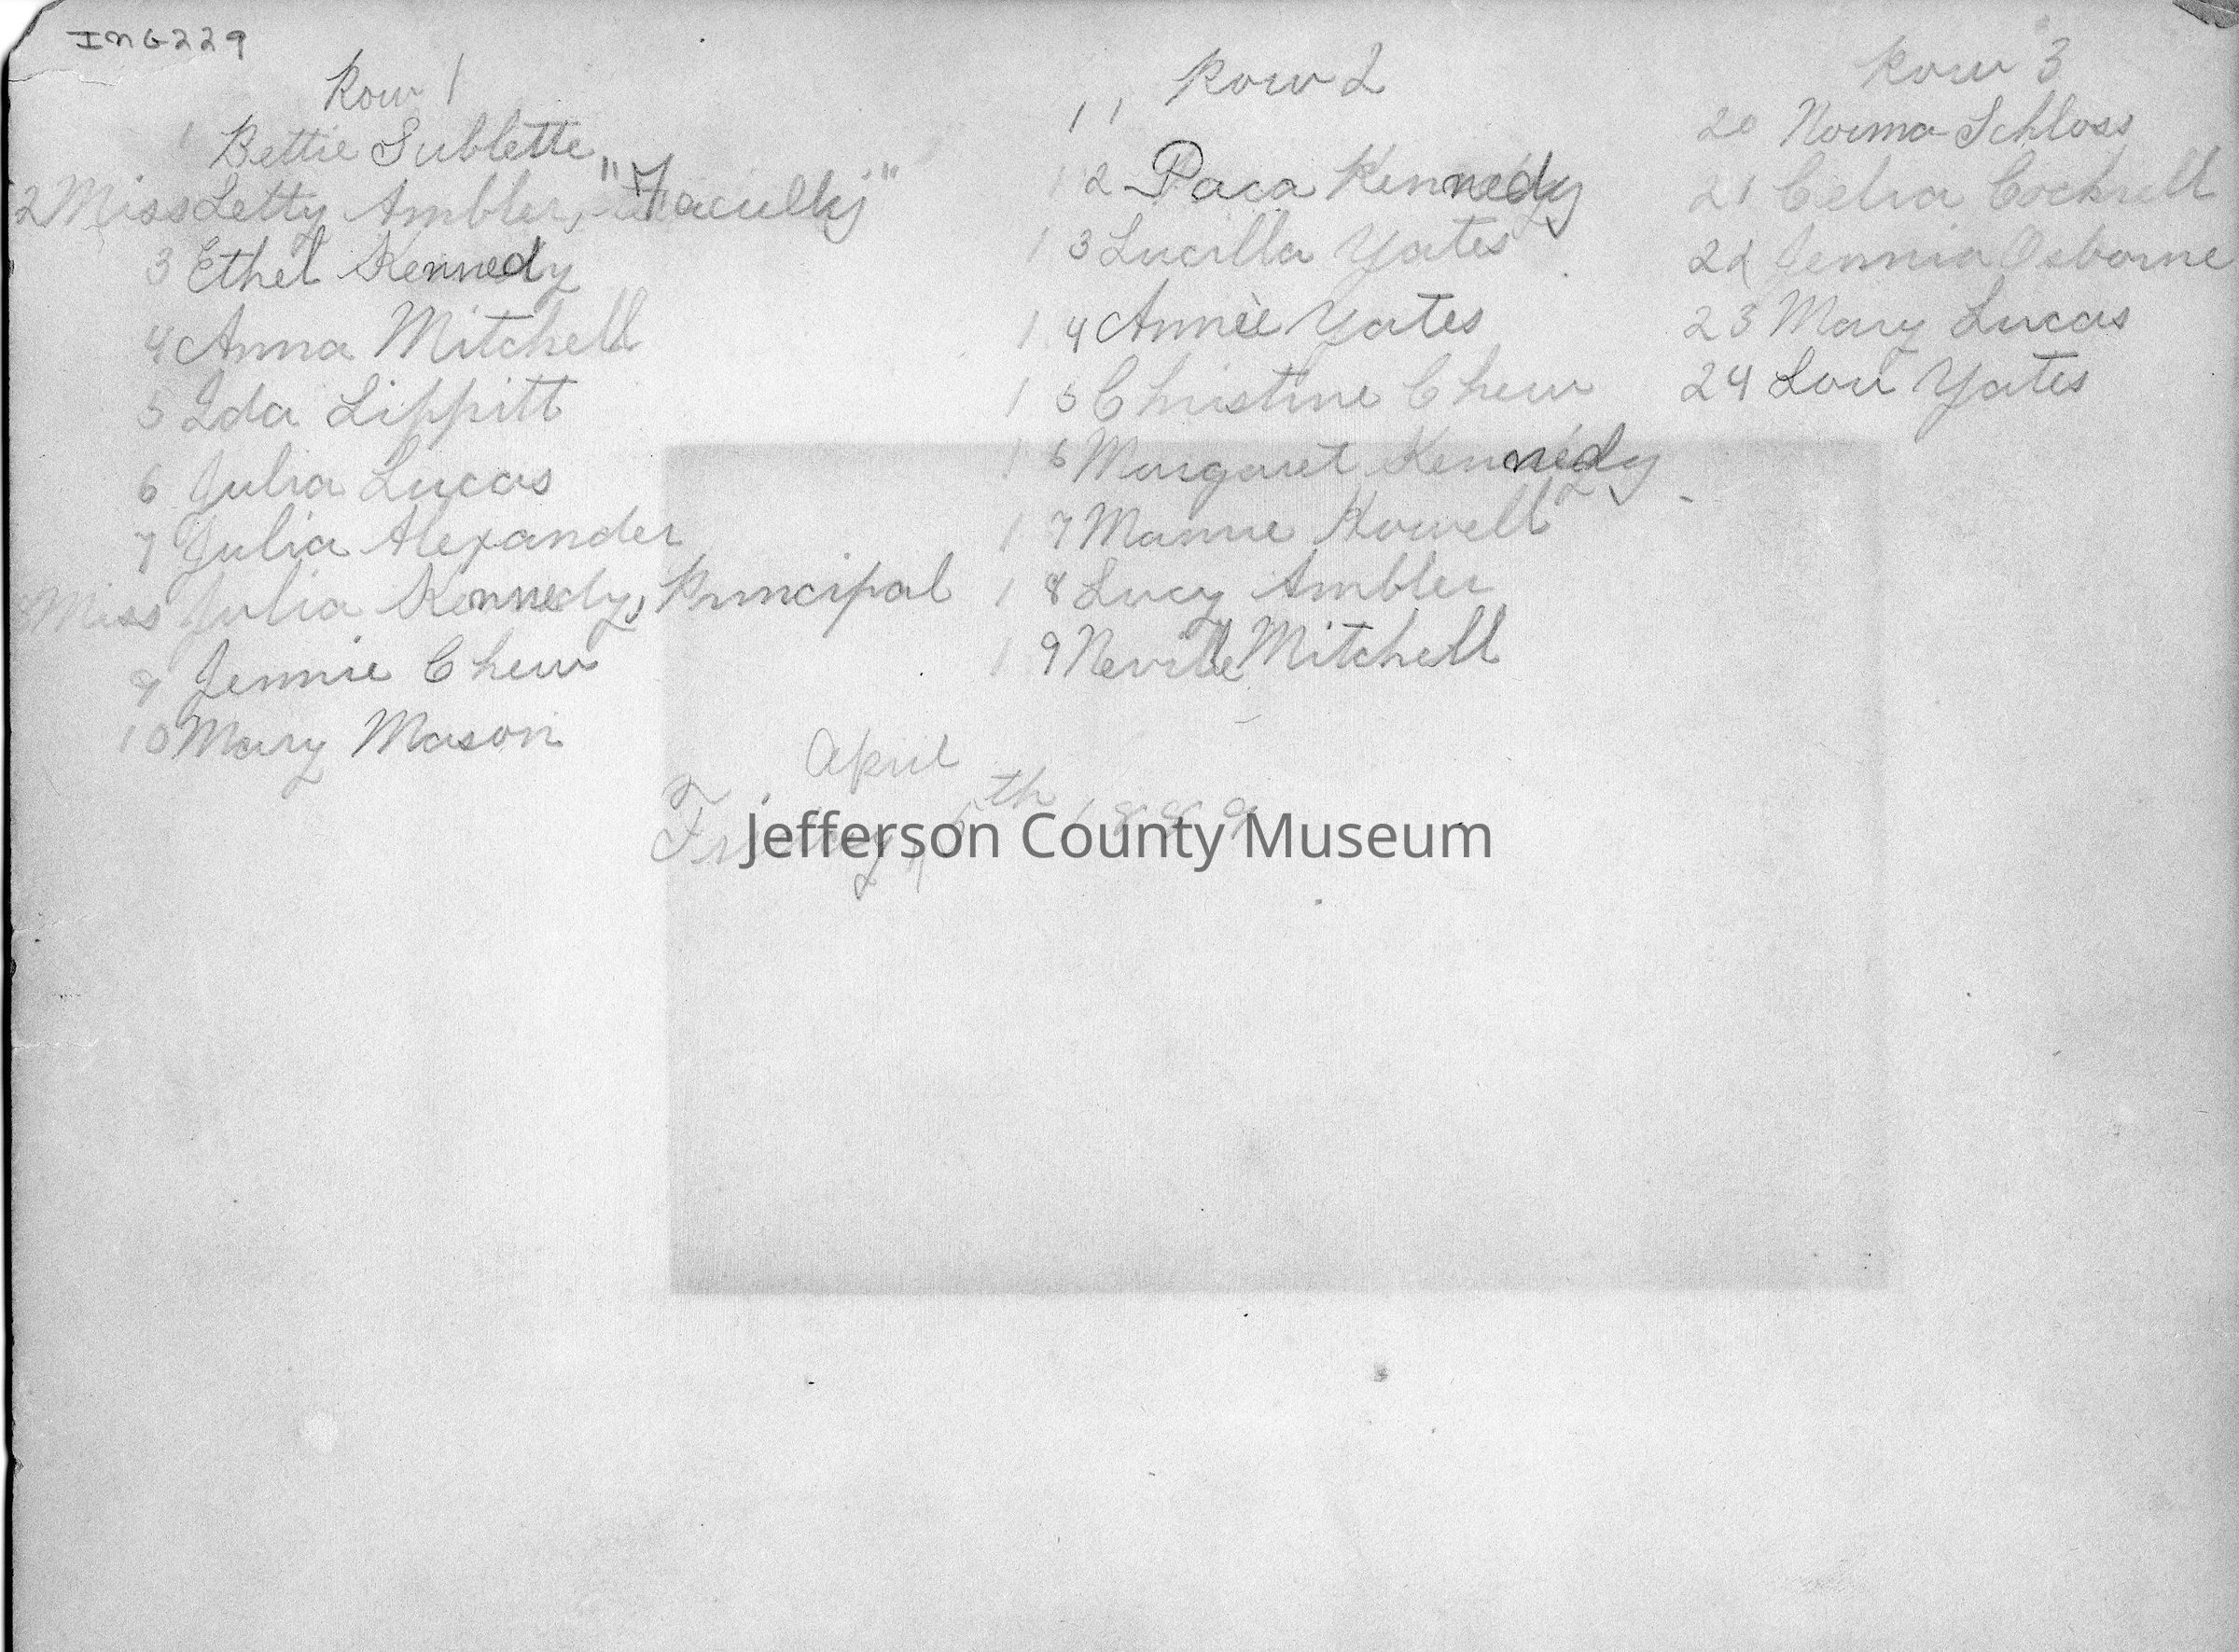 ING229
Row 1
1 Bettie Sublette
2 Miss Letty Ambler, "Faculty"
3 Ethel Kennedy
4 Anna Mitchell
5 Ida Lippitt
6 Julia Lucas
7 Julia Alexander
Miss Julia Kennedy, Principal
9 Jennie Chew
10 Mary Mason
Row 2
11
12 Paca Kennedy
13 Lucilla Yates
14 Annie Yates
15 Christine Chew
16 Margaret Kennedy
17 Mamie Howell
18 Lucy Ambler
19 Neville Mitchell
Row 3
20 Norma Schloss
21 Celia Cockrell
22 Jennia Osborne
23 Mary Lucas
24 Lou Yates
April
Friday, 5th 1889
Jefferson County Museum